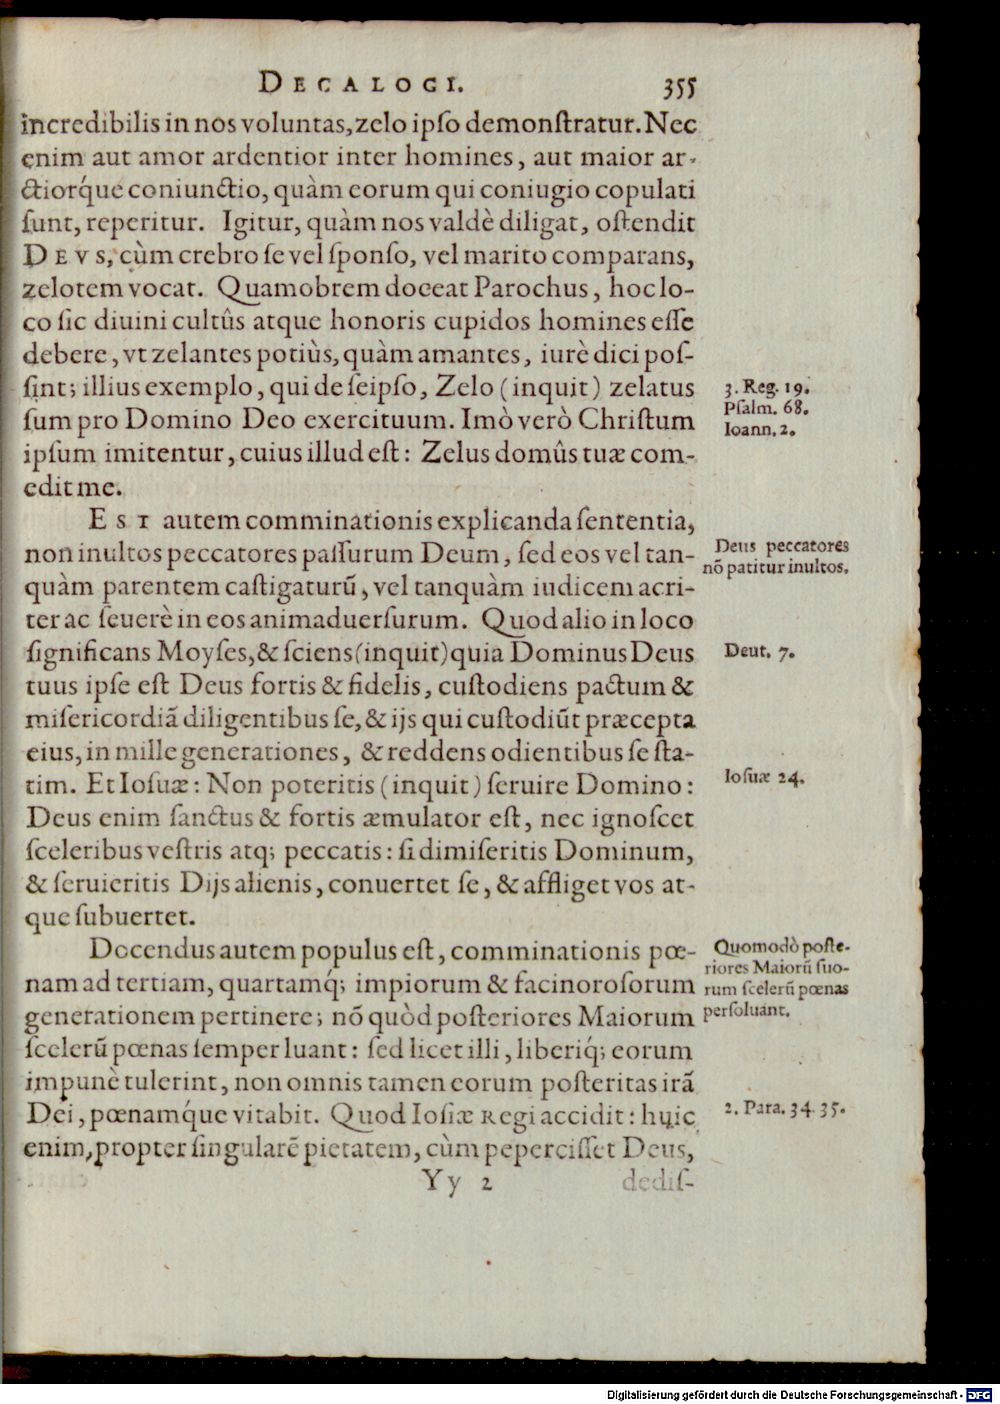 DECALOGI. 355
incredibilis in nos voluntas, zelo ipſo demonſtratur. Nec
enim aut amor ardentior inter homines, aut maior ar-
ctiorq́ue coniunctio, quàm eorum qui coniugio copulati
ſunt, reperitur. Igitur, quàm nos valdè diligat, oſtendit
DEVS, cùm crebro ſe vel ſponſo, vel marito comparans,
zelotem vocat. Quamobrem doceat Parochus, hoc lo-
co ſic diuini cultûs atque honoris cupidos homines eſſe
debere, vt zelantes potiùs, quàm amantes, iurè dici poſ-
ſint; illius exemplo, qui de ſeipſo, Zelo (inquit) zelatus
ſum pro Domino Deo exercituum. Imò verò Chriſtum
ipſum imitentur, cuius illud eſt: Zelus domûs tuæ com-
edit me.
3. Reg. 19.
Pſalm. 68.
Ioann. 2.
EST autem comminationis explicanda ſententia,
non inultos peccatores paſſurum Deum, ſed eos vel tan-
quàm parentem caſtigaturū, vel tanquàm iudicem acri-
ter ac ſeuerè in eos animaduerſurum. Quod alio in loco
ſignificans Moyſes, & ſciens (inquit) quia Dominus Deus
tuus ipſe eſt Deus fortis & fidelis, cuſtodiens pactum &
miſericordiā diligentibus ſe, & ijs qui cuſtodiūt præcepta
eius, in mille generationes, & reddens odientibus ſe ſta-
tim. Et Ioſuæ: Non poteritis (inquit) ſeruire Domino:
Deus enim ſanctus & fortis æmulator eſt, nec ignoſcet
ſceleribus veſtris atq; peccatis: ſi dimiſeritis Dominum,
& ſeruieritis Dijs alienis, conuertet ſe, & affliget vos at-
que ſubuertet.
Deus peccatores
nō patitur inultos.
Deut. 7.
Ioſuæ 24.
Docendus autem populus eſt, comminationis pœ-
nam ad tertiam, quartamq́; impiorum & facinoroſorum
generationem pertinere; nō quòd poſteriores Maiorum
ſcelerū pœnas ſemper luant: ſed licet illi, liberiq́; eorum
impunè tulerint, non omnis tamen eorum poſteritas irā
Dei, pœnamq́ue vitabit. Quod Ioſiæ Regi accidit: huic
enim, propter ſingularē pietatem, cùm peperciſſet Deus,
Quomodò poſte-
riores Maiorū ſuo-
rum ſcelerū pœnas
perſoluant.
2. Para. 34. 35.
Yy 2 dediſ-
Digitalisierung gefördert durch die Deutsche Forschungsgemeinschaft - DFG